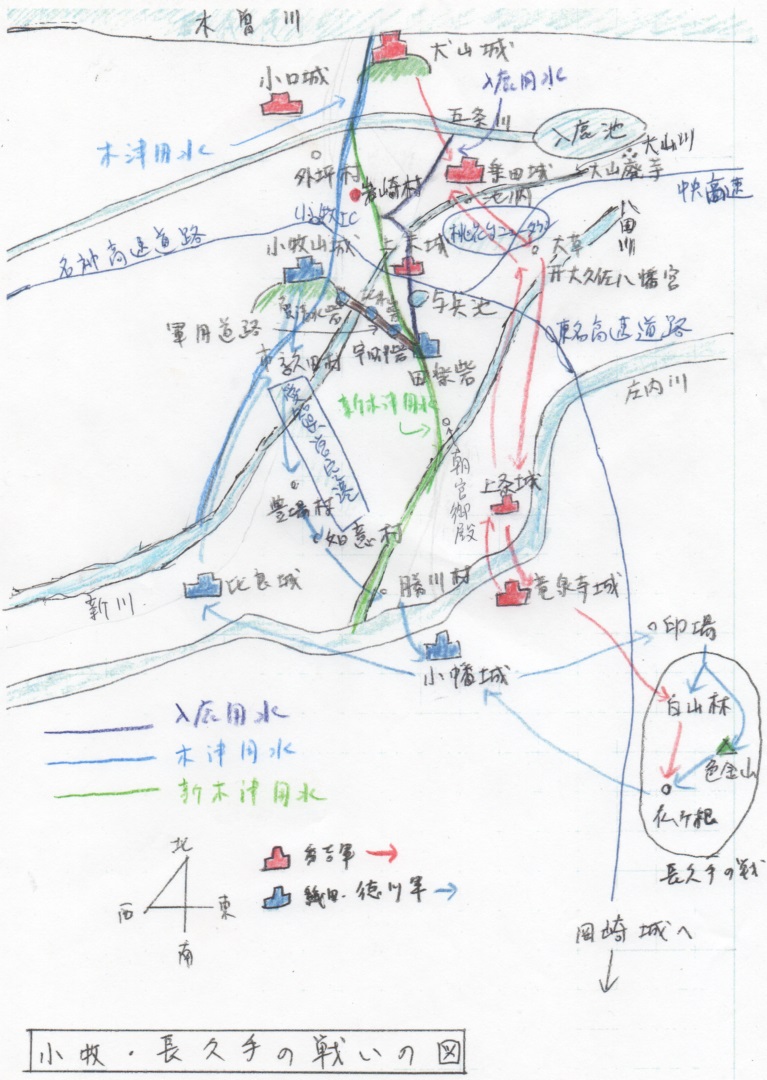 木曽川
犬山城
小口城
入鹿用水
五条川
入鹿池
木津用水
大山川
大山廃寺
外坪村
岩崎村
楽田城
池ノ内
中央高速
小牧IC
桃花台ニュータウン
八田川
名神高速道路
小牧山城
上末城
大草
大久佐八幡宮
与兵池
軍用道路
宇田津砦
田楽砦
東名高速道路
庄内川
市之久田村
新木津用水
朝宮御殿
豊場村
如意村
上条城
新川
比良城
勝川村
竜泉寺城
小幡城
印場
白山林
色金山
仏ヶ根
長久手の戦
入鹿用水
木津用水
新木津用水
北
西
東
南
秀吉軍
織田・徳川軍
岡崎城へ
小牧・長久手の戦いの図